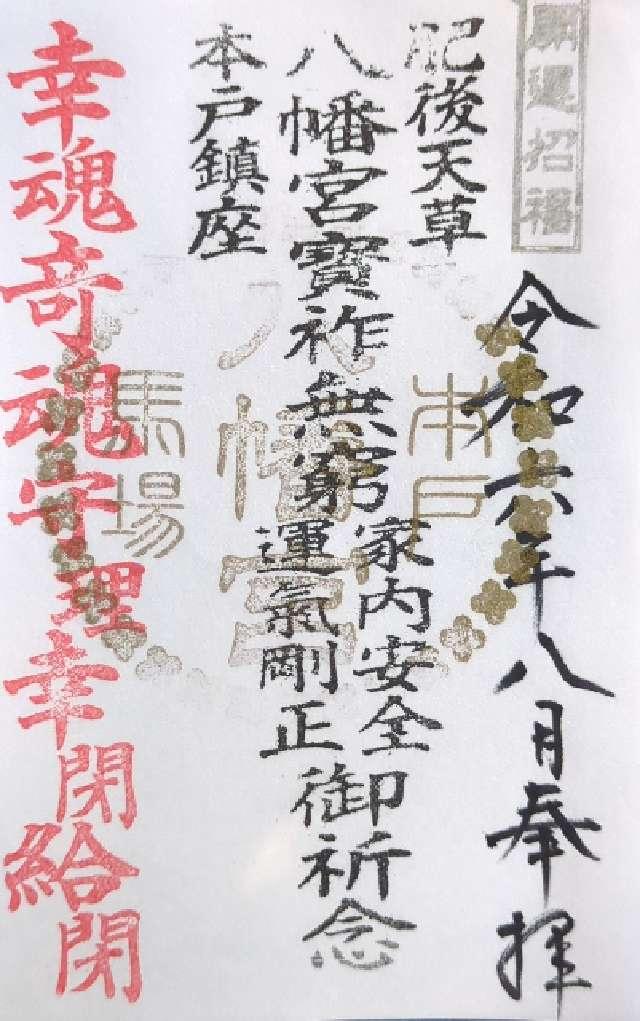 開運招福
令和六年八月奉拝
肥後天草
八幡宮寳祚無窮
家内安全
運氣剛正
御祈念
本戸鎮座
本戸
八幡宮
馬場
幸魂奇魂守理幸閇給閇